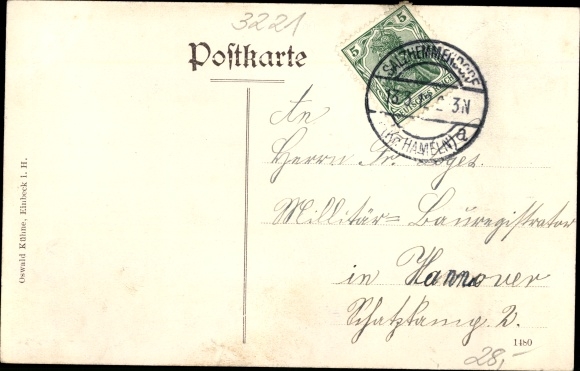 3221
Postkarte
5 5
DEUTSCHES REICH
SALZHEMMENDORF
2-3N
(Kr. HAMELN) a
An
Herrn Fr. Voges.
Militär= Bauregistrator
in Hannover
Schatzkamp 2.
Oswald Kühne, Einbeck i. H.
1480
28,-